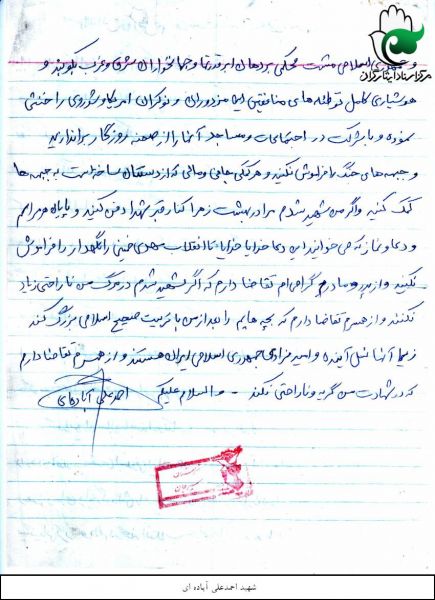 مرکز اسناد ایثارگران
و جمهوری اسلامی مشت محکمی بر دهان ابرقدرتها و جهانخواران شرق و غرب بکوبند و
هوشیاری کامل توطئه های منافقین این مزدوران و نوکران امریکا و شوروی را خنثی
نموده و با شرکت در اجتماعات و مساجد آنها را از صحنه روزگار براندازید
و جبهه های جنگ را فراموش نکنید و هر کمکی جانی و مالی که از دستتان ساخته است به جبهه ها
کمک کنید و اگر من شهید شدم مرا در بهشت زهرا کنار قبر شهدا دفن کنید و پایان مراسم
و دعا و نماز که می خوانید این دعا خدایا خدایا تا انقلاب مهدی خمینی را نگهدار را فراموش
نکنید و از پدر و مادرم گرامی ام تقاضا دارم که اگر شهید شدم در مرگ من ناراحتی زیاد
نکنند و از همسرم تقاضا دارم که بچه هایم را بعد از من با تربیت صحیح اسلامی بزرگ کند
زیرا آنها نسل آینده و امید فردای جمهوری اسلامی ایران هستند و از همسرم تقاضا دارم
که در شهادت من گریه و ناراحتی نکند - والسلام علیکم
احمد علی آباده ای
شهید احمدعلی آباده ای